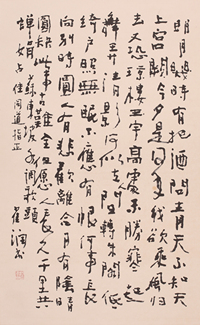 明月幾時有把酒問青天不知天
上宫闕今夕是何年我欲乘風归
去又恐瓊樓玉宇高處不勝寒起
舞弄清影何似在人間轉朱閣低
綺户照無眠不應有恨何事長
向别時圓人有悲歡離合月有陰晴
圓缺此事古難全但愿人長久千里共
嬋娟 蘇東坡水調歌頭
女士 同道指正